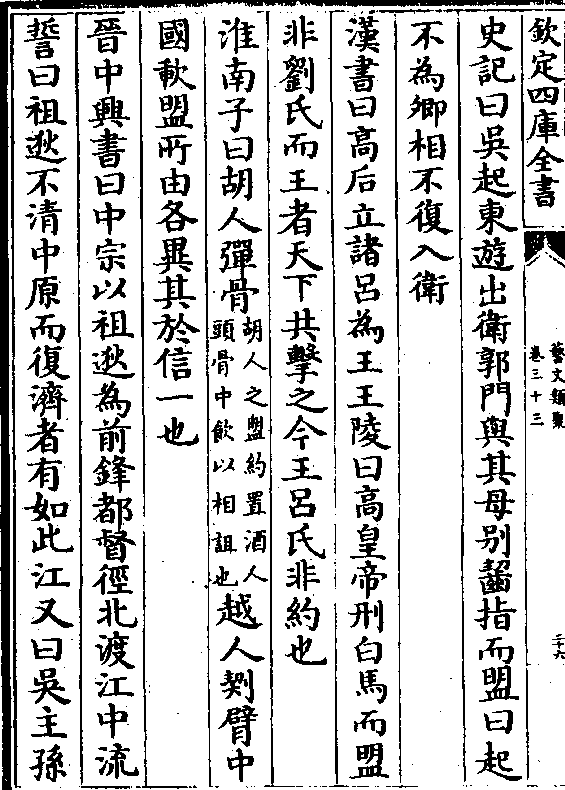 欽定四庫全書
藝文類聚
卷三十三
二十六
史記曰吳起東遊出衛郭門與其母別齧指而盟曰起
不為卿相不復入衛
漢書曰高后立諸呂為王王陵曰高皇帝刑白馬而盟
非劉氏而王者天下共擊之今王呂氏非約也
淮南子曰胡人彈骨胡人之盟約置酒人頭骨中飲以相詛也越人剺臂中
國歃盟所由各異其於信一也
晉中興書曰中宗以祖逖為前鋒都督徑北渡江中流
誓曰祖逖不清中原而復濟者有如此江又曰吳主孫